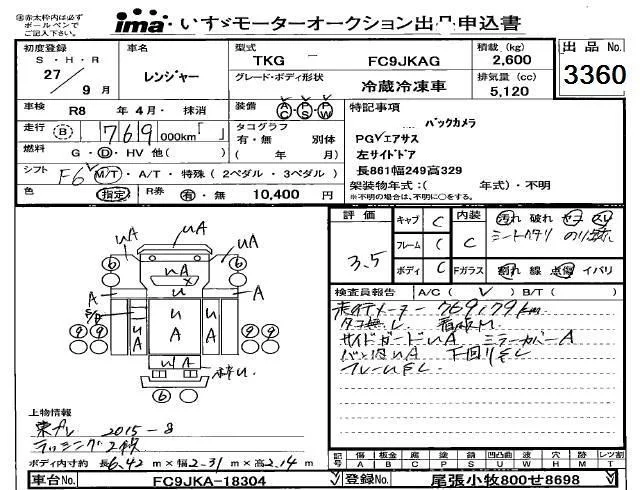 ㊟赤太枠内は必ず
ボールペンで
ご記入下さい。
ima いすゞモーターオークション出品申込書
初度登録 車名 型式 TKG FC9JKAG 積載 (kg) 2,600 出品No.
S・H・R
27/9月 レンジャー グレード・ボディ形状 冷蔵冷凍車 排気量 (cc) 5,120 3360
車検 R8 年 4 月・ 抹消 装備 AC・PS・PW 特記事項
バックカメラ
走行 B 769 000km「 」 タコグラフ 有・無 別体 PG エアサス
燃料 G・D・HV 他( ) ( 年 月) 左サイドドア
シフト F6 M/T・A/T・特殊(2ペダル・3ペダル) 長861幅249高329
架装物年式:( 年式)・不明
色 指定 R券 有・無 10,400 円 ※不明の場合は、不明に○をする。
評価 3.5 キャブ C 内装 C 汚れ 破れ
フレーム C
ボディ C Fガラス 割れ 線 点傷 イバリ
検査員報告 A/C( ) B/T( )
769179km
サイドガードUA ミラーカバーA
下回りSL
フレームSL
UA UA UA
6 6
A U A
UA A UA
9 9 9 9
UA
6
上物情報
東プレ 2015-8
ラッシング2段
ボディ内寸約 長6.42m×幅2.31m×高2.14m
記号 傷 板金 腐 塗装 錆 凹凸曲 波 穴 欠 レツ割
A B C P S U W H M T
車台No. FC9JKA-18304 登録No. 尾張小牧800せ8698